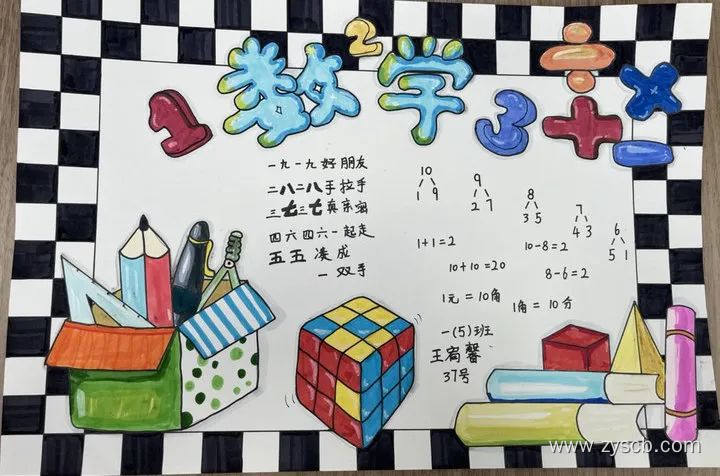 1 数学 2 3 ÷ + × −
一九一九好朋友
二八二八手拉手
三七三七真亲密
四六四六一起走
五五凑成
一双手
10
1 9
9
2 7
8
3 5
7
4 3
6
5 1
1+1=2
10-8=2
10+10=20
8-6=2
1元=10角
1角=10分
一(5)班
37号
www.zyscb.com